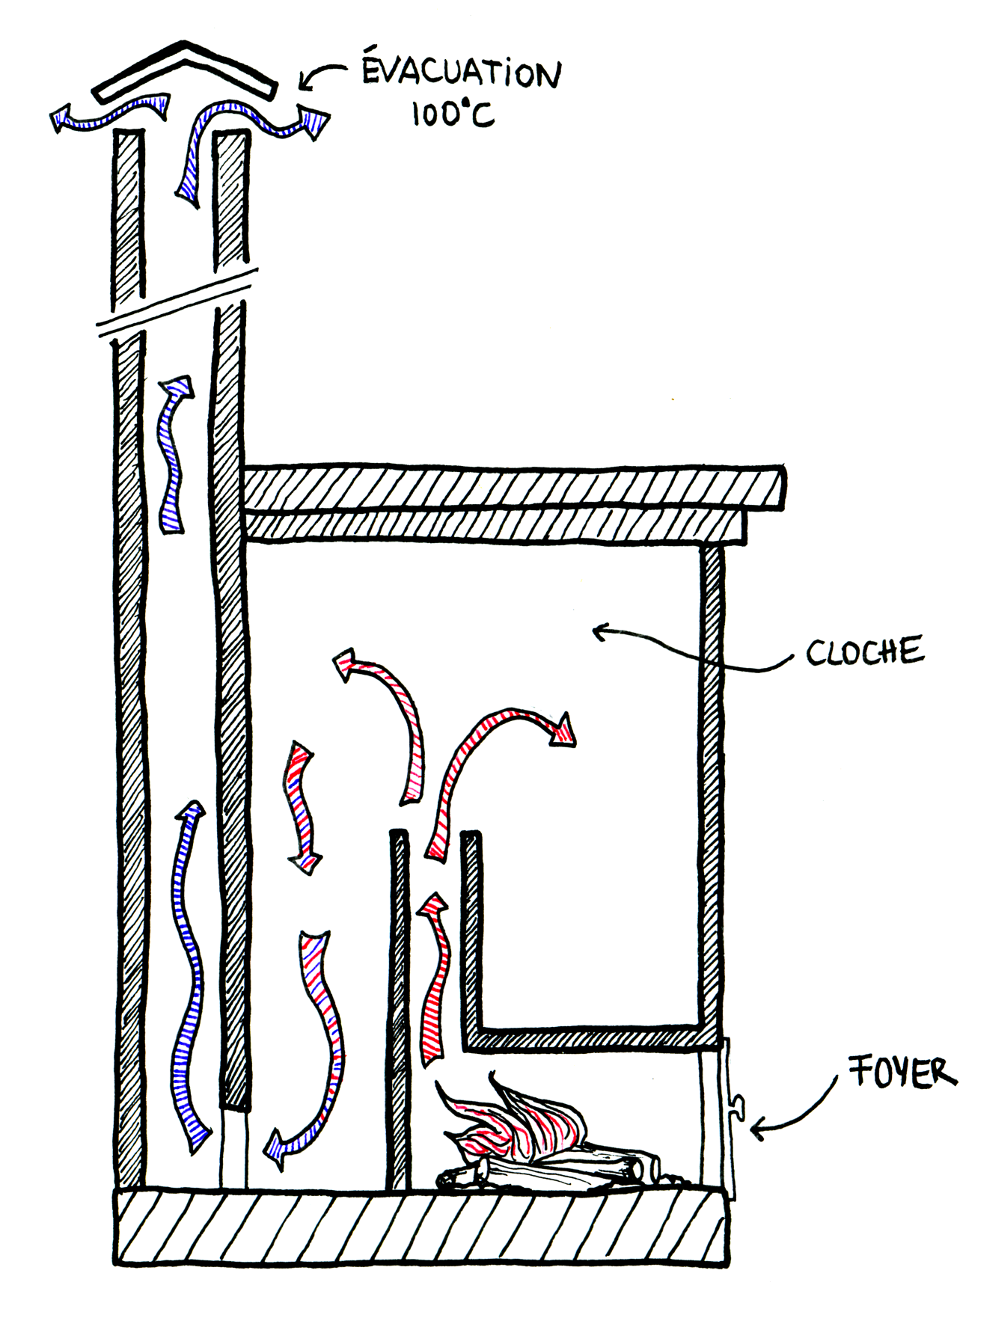 ÉVACUATION
100°C
CLOCHE
FOYER